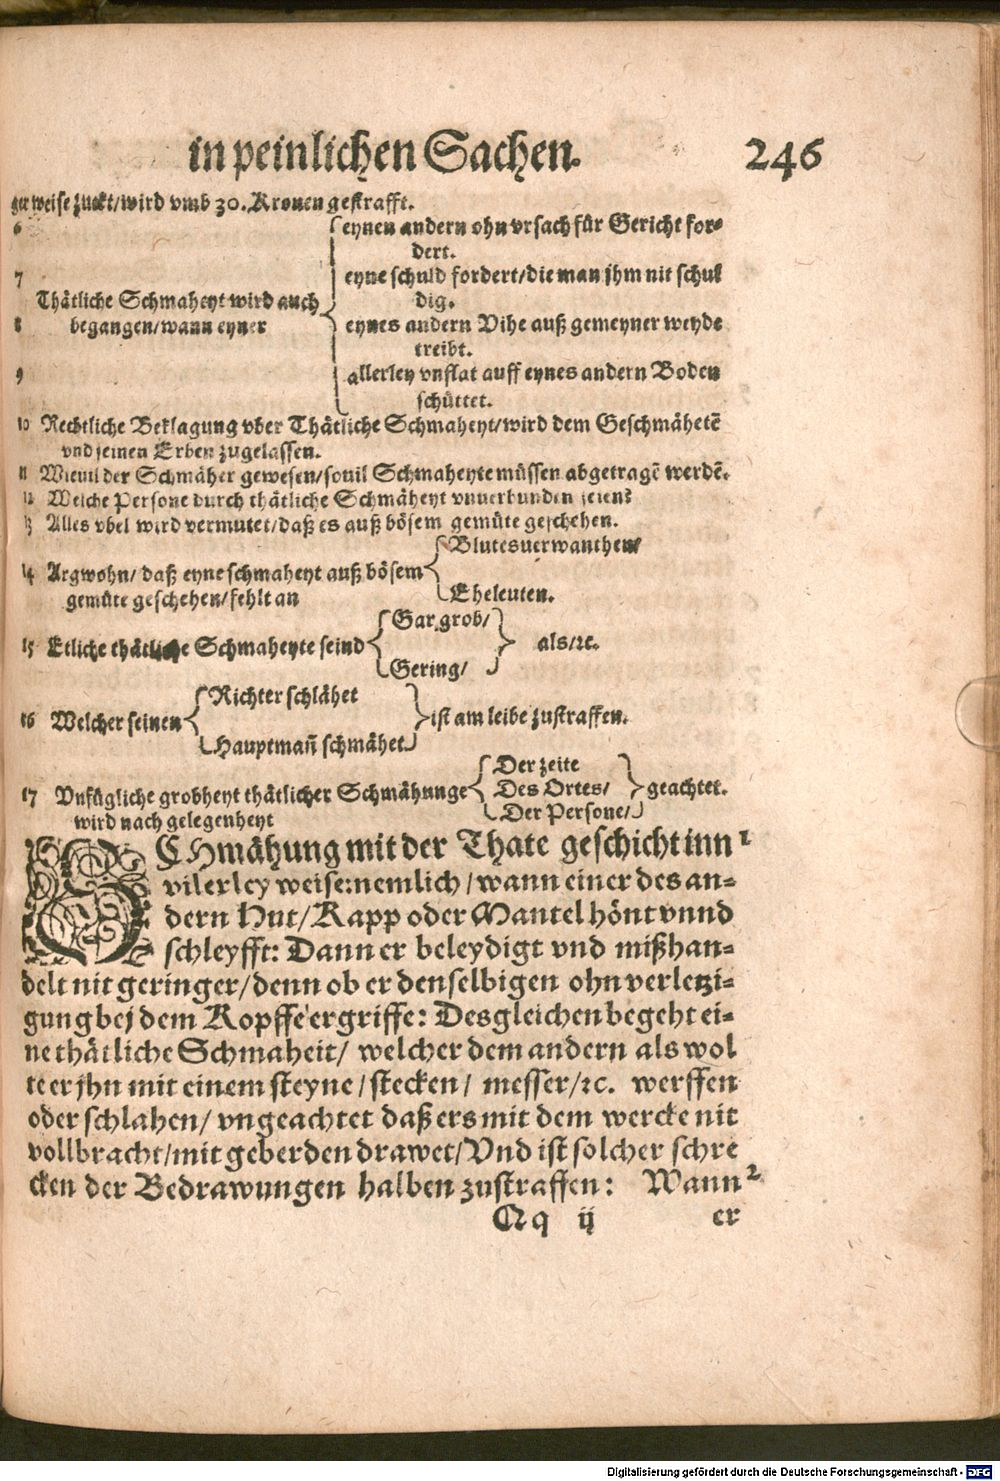 in peinlichen Sachen. 246
ger weise zuckt/wird vmb 30. Kronen gestrafft.
6 eynen andern ohn vrsach für Gericht for-
dert.
7 eyne schuld fordert/die man jhm nit schul
Thätliche Schmaheyt wird auch dig.
8 begangen/wann eyner eynes andern Vihe auß gemeyner weyde
treibt.
9 allerley vnflat auff eynes andern Boden
schüttet.
10 Rechtliche Beklagung vber Thätliche Schmaheyt/wird dem Geschmähetē
vnd seinen Erben zugelassen.
11 Wieuil der Schmäher gewesen/souil Schmaheyte müssen abgetragē werdē.
12 Welche Persone durch thätliche Schmäheyt vnuerbunden seien?
13 Alles vbel wird vermutet/daß es auß bösem gemüte geschehen.
Blutesuerwanthen/
14 Argwohn/ daß eyne schmaheyt auß bösem
gemüte geschehen/fehlt an Eheleuten.
Gar grob/
15 Etliche thätliche Schmaheyte seind als/ꝛc.
Gering/
Richter schlähet
16 Welcher seinen ist am leibe zustraffen.
Hauptmañ schmähet
Der zeite
17 Vnfügliche grobheyt thätlicher Schmähunge Des Ortes/ geachtet.
wird nach gelegenheyt Der Persone/
SCHmähung mit der Thate geschicht inn 1
vilerley weise: nemlich/wann einer des an-
dern Hut/Kapp oder Mantel hönt vnnd
schleyfft: Dann er beleydigt vnd mißhan-
delt nit geringer/denn ob er denselbigen ohn verletzi-
gung bej dem Kopffe ergriffe: Desgleichen begeht ei-
ne thätliche Schmaheit/ welcher dem andern als wol
te er jhn mit einem steyne/stecken/ messer/ꝛc. werffen
oder schlahen/ vngeachtet daß ers mit dem wercke nit
vollbracht/mit geberden drawet/Vnd ist solcher schre
cken der Bedrawungen halben zustraffen: Wann 2
Qq ij er
Digitalisierung gefördert durch die Deutsche Forschungsgemeinschaft - DFG